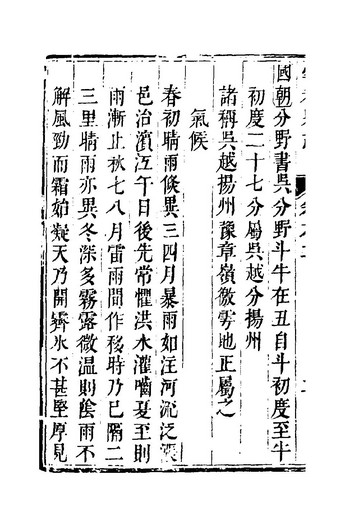 國朝分野書吳分野斗牛在丑自斗初度至牛
初度二十七分屬吳越分揚州
諸稱吳越揚州豫章嶺徼雩地正屬之
氣候
春初晴雨候異三四月暴雨如注河流泛漲
邑治濱江午日後先常懼洪水灌嚙夏至則
雨漸止秋七八月雷雨間作移時乃已隔二
三里晴雨亦異冬深多霧露微溫則陰雨不
解風勁而霜始凝天乃開霽氷不甚堅厚見